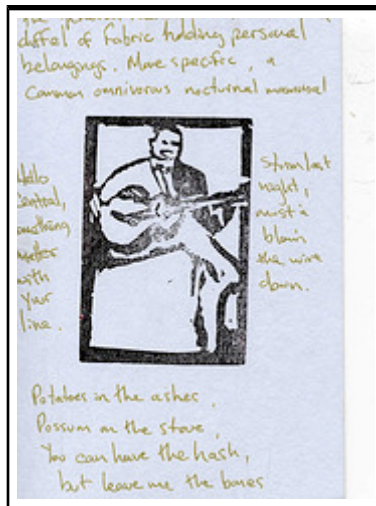 duffel of fabric holding personal
belongings. More specific, a
common omnivorous nocturnal mammal
Hello
Central,
anything
matter
with
your
line.
Storm last
night,
must a
blown
the wire
down.
Potatoes in the ashes,
Possum on the stove,
You can have the hash,
but leave me the bones